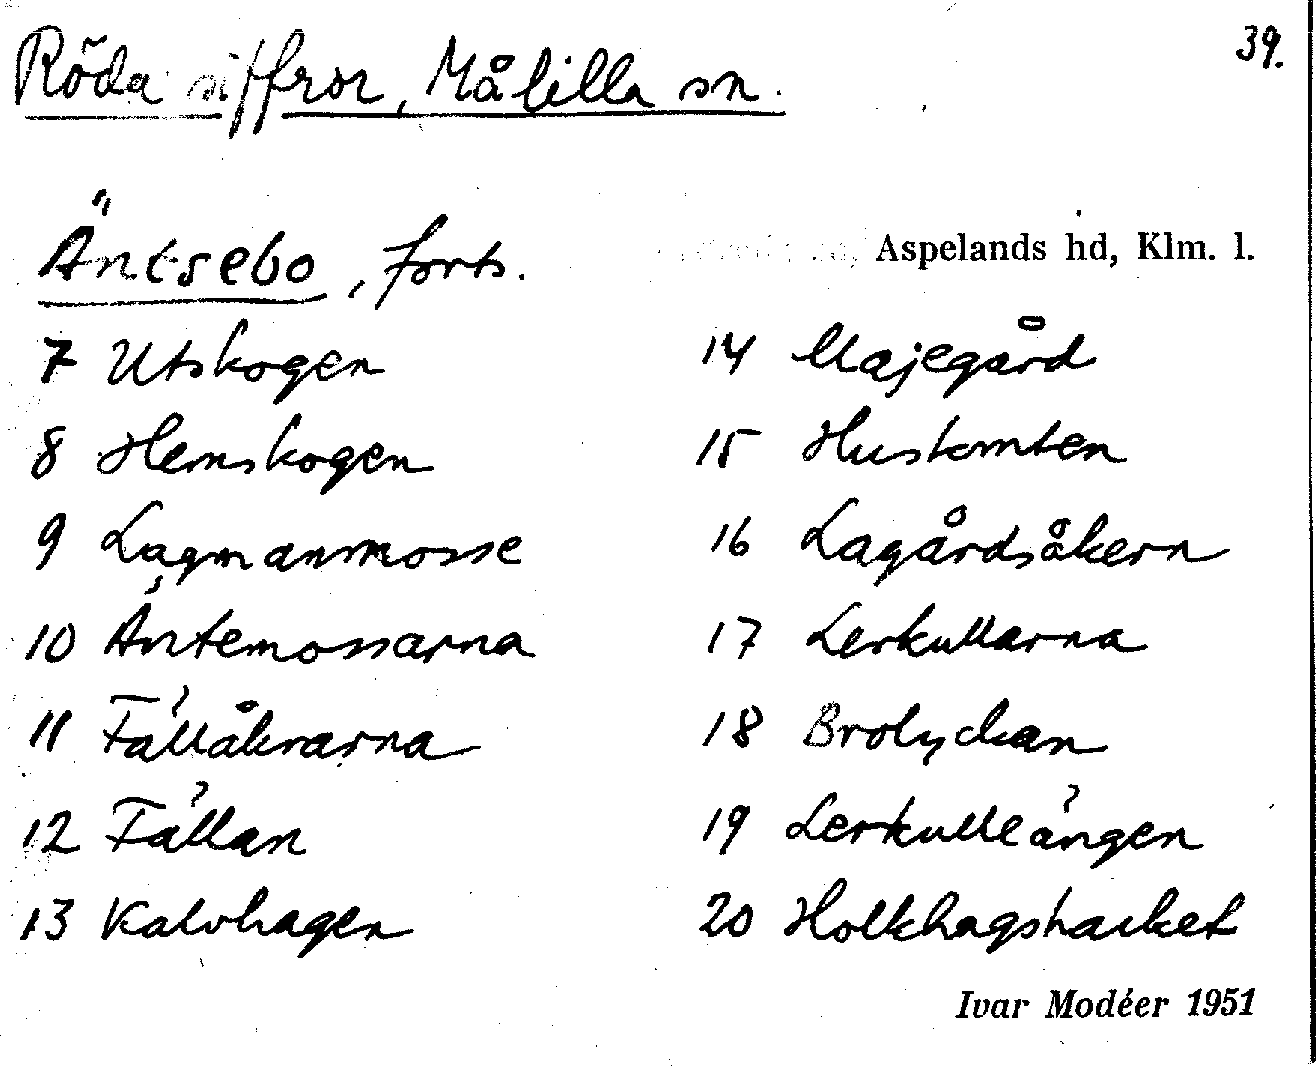 39.
Röda siffror, Målilla sn.
Äntsebo, forts.
Aspelands hd, Klm. l.
7 Utskogen
8 Hemskogen
9 Lagmansmosse
10 Äntemossarna
11 Fällåkrarna
12 Fällan
13 Kalvhagen
14 Majegård
15 Hustomten
16 Lagårdsåkern
17 Lerkullarna
18 Brolyckan
19 Lerkulleängen
20
Ivar Modéer 1951